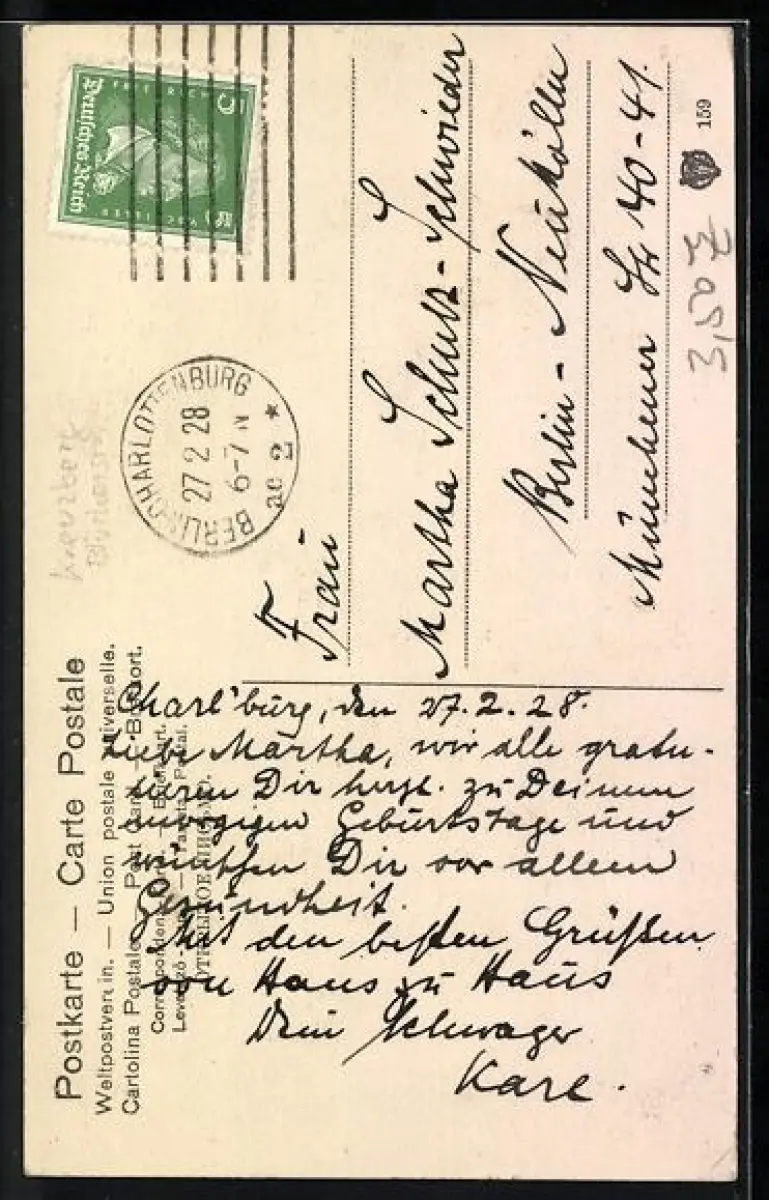 Postkarte — Carte Postale
Weltpostverein. — Union postale universelle.
Cartolina Postale. — Post Card. —
Deutsches Reich
5
BERLIN-CHARLOTTENBURG
27 2 28
6-7 N
2
Kreuzberg
Frau
Martha Schulz-Schwieder
Berlin-Neukölln
Münchener Str 40-41.
159
3,50
Charl'burg, den 27.2.28.
Liebe Martha, wir alle gratu-
lieren Dir herzl. zu Deinem
morgigen Geburtstage und
wünschen Dir vor allem
Gesundheit.
Mit den besten Grüßen
von Haus zu Haus
Dein Schwager
Karl.